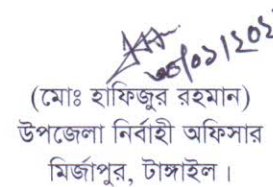 (মোঃ হাফিজুর রহমান)
উপজেলা নির্বাহী অফিসার
মির্জাপুর, টাঙ্গাইল।